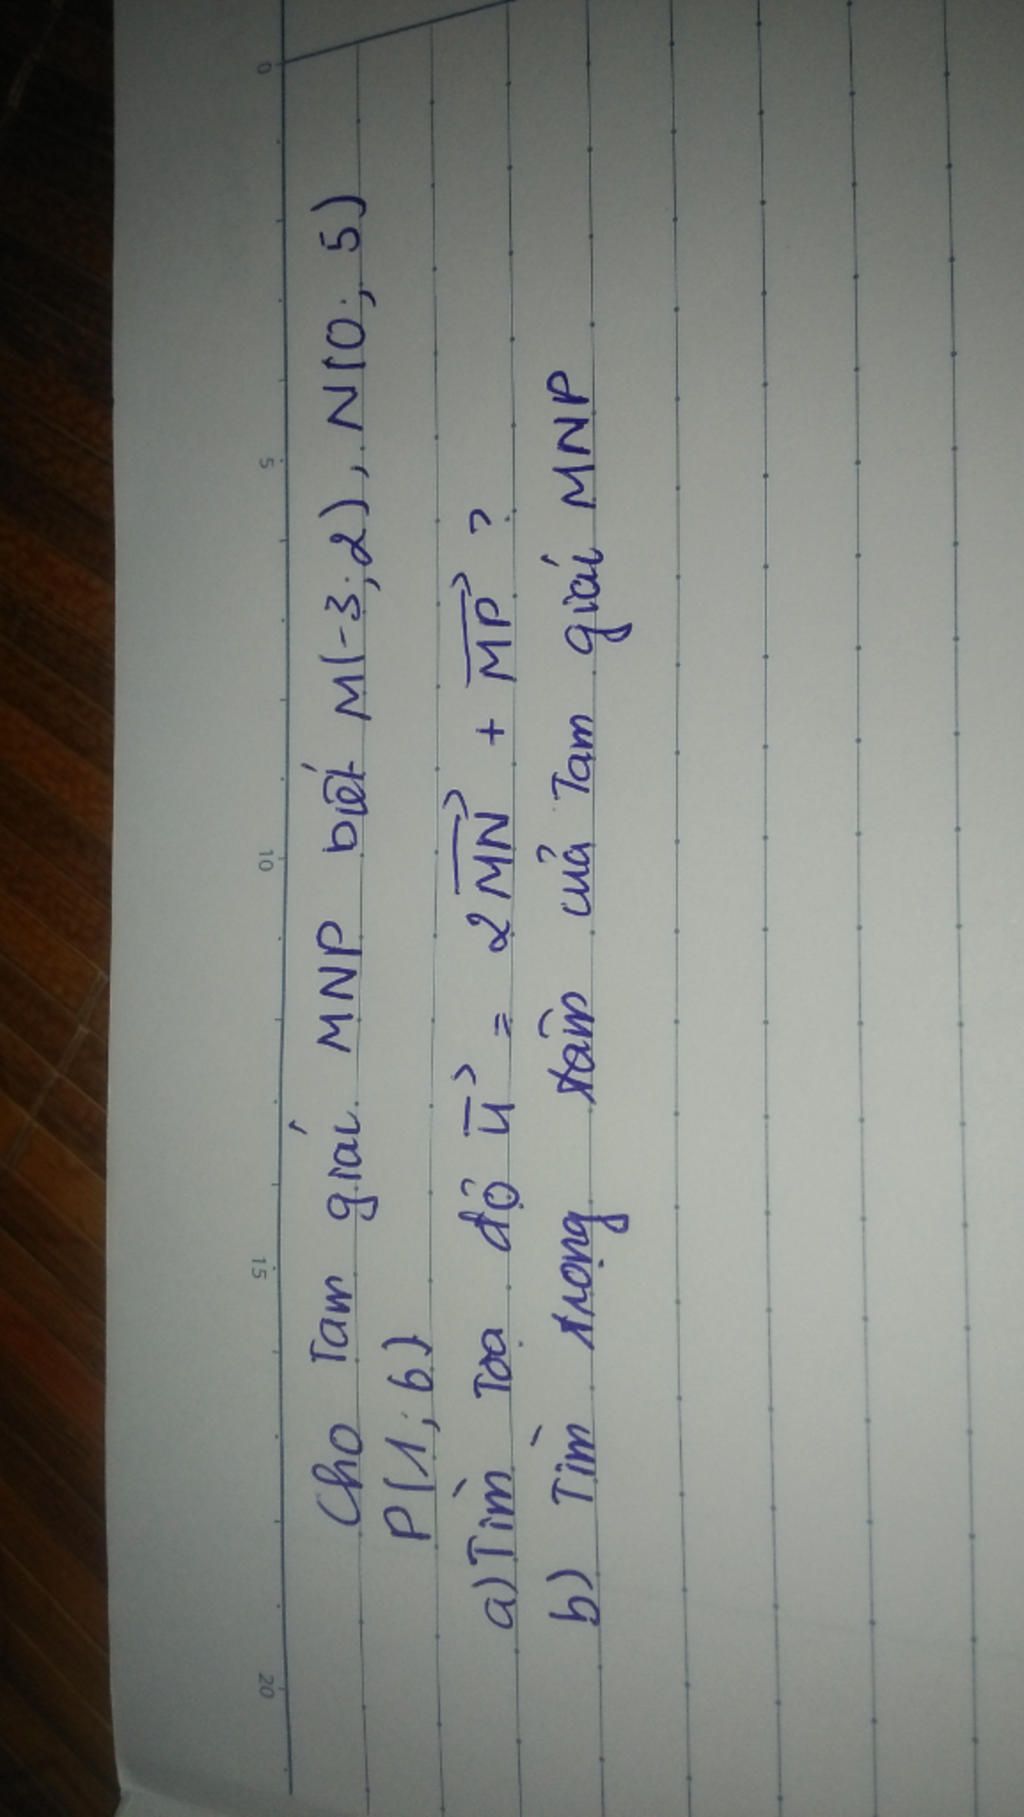 Cho Tam giác MNP biết M(-3; 2), N(0; 5)
P(1; 6)
a) Tìm Toạ độ u = 2MN + MP ?
b) Tìm trọng tâm của Tam giác MNP
0 5 10 15 20